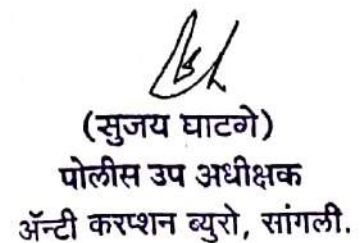 (सुजय घाटगे)
पोलीस उप अधीक्षक
ॲन्टी करप्शन ब्युरो, सांगली.